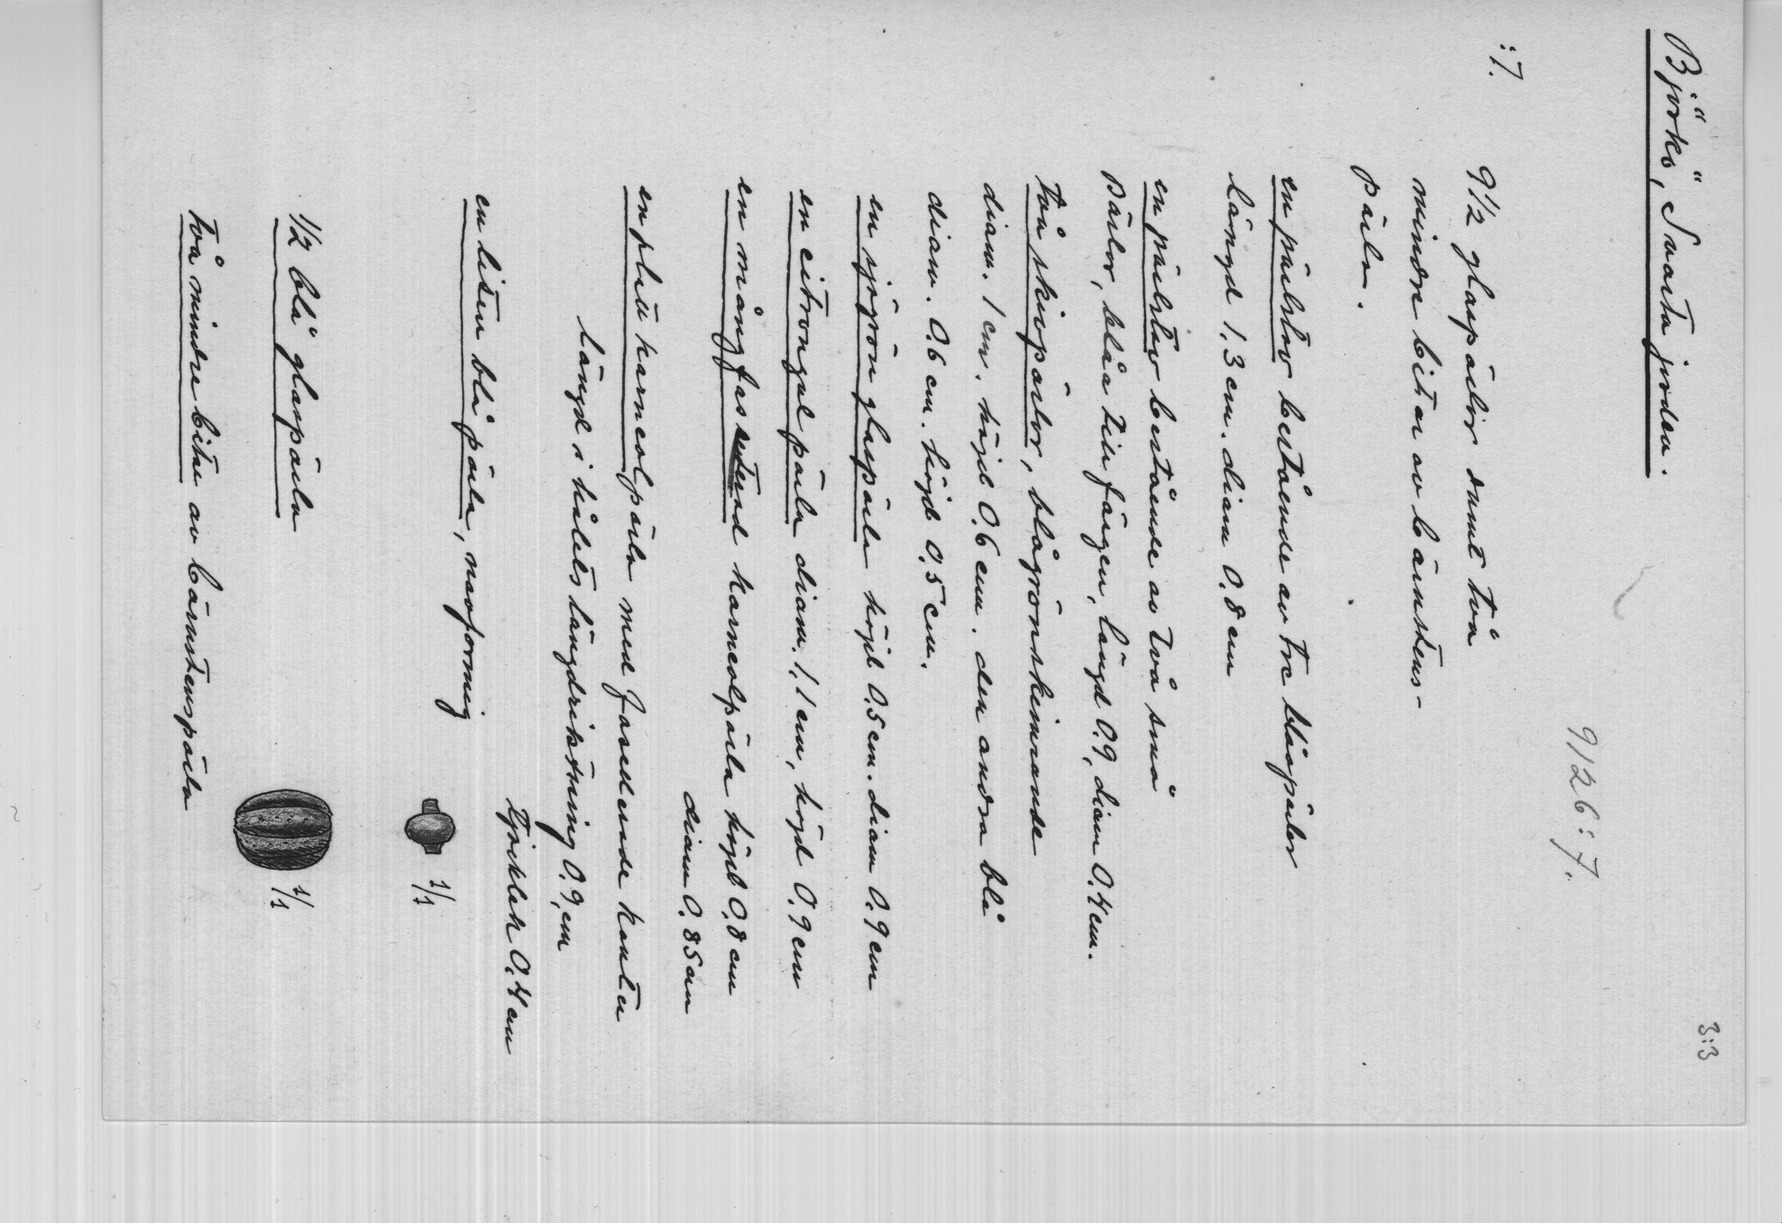 3:3
Björkö, Svarta jorden.
9126:7.
:7. 9 1/2 glaspärlor samt två
mindre bitar av bärnstens-
pärla.
en pärlstav bestående av tre blåapärlor
längd 1,3 cm. diam 0,8 cm
en pärlstav bestående av två små
pärlor, blåa till färgen, längd 0,9, diam 0,4 cm.
två skivpärlor, blågrönskimrande
diam. 1 cm. höjd 0,6 cm. den andra blå
diam. 0,6 cm. höjd 0,5 cm.
en sjögrön glaspärla höjd 0,5 cm. diam 0,9 cm
en citrongul pärla diam. 1,1 cm, höjd 0,9 cm
en mångfasetterad karneolpärla höjd 0,8 cm
diam 0,85 cm
en platt karneolpärla med fasetterade kanter
längd i hålets längdriktning 0,9 cm
tjocklek 0,4 cm
en liten blå pärla, navformig
1/1
1/2 blå glaspärla
1/1
två mindre bitar av bärnstenspärla